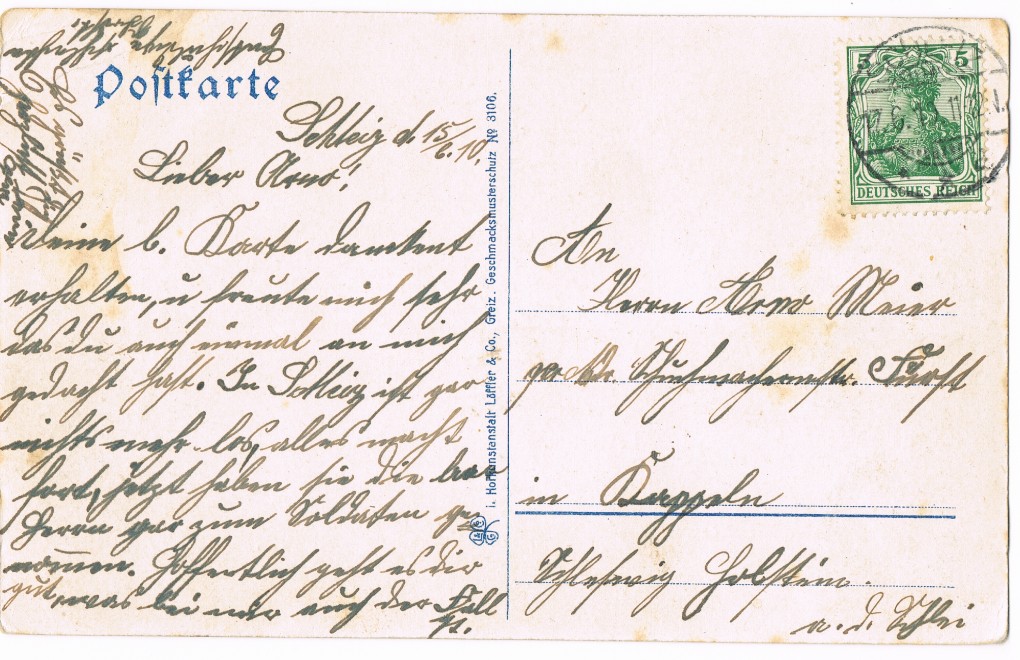 Postkarte
Schleiz d. 15/6.10.
Lieber Arno!
Deine l. Karte dankent
erhalten, u freute mich sehr
das du auch einmal an mich
gedacht hast. In Schleiz ist gar
nichts mehr los, alles macht
fort, jetzt haben sie die
Herrn gar zum Soldaten ge-
nommen. Hoffentlich geht es dir
gut, was bei mir auch der Fall
ist.
Es grüßt
i. Hofkunstanstalt Löffler & Co., Greiz. Geschmacksmusterschutz № 3106.
5 5
DEUTSCHES REICH
An
Herrn Arno Meier
Schuhmachermstr.
in Kappeln
Schleswig Holstein.
a. d. Schlei